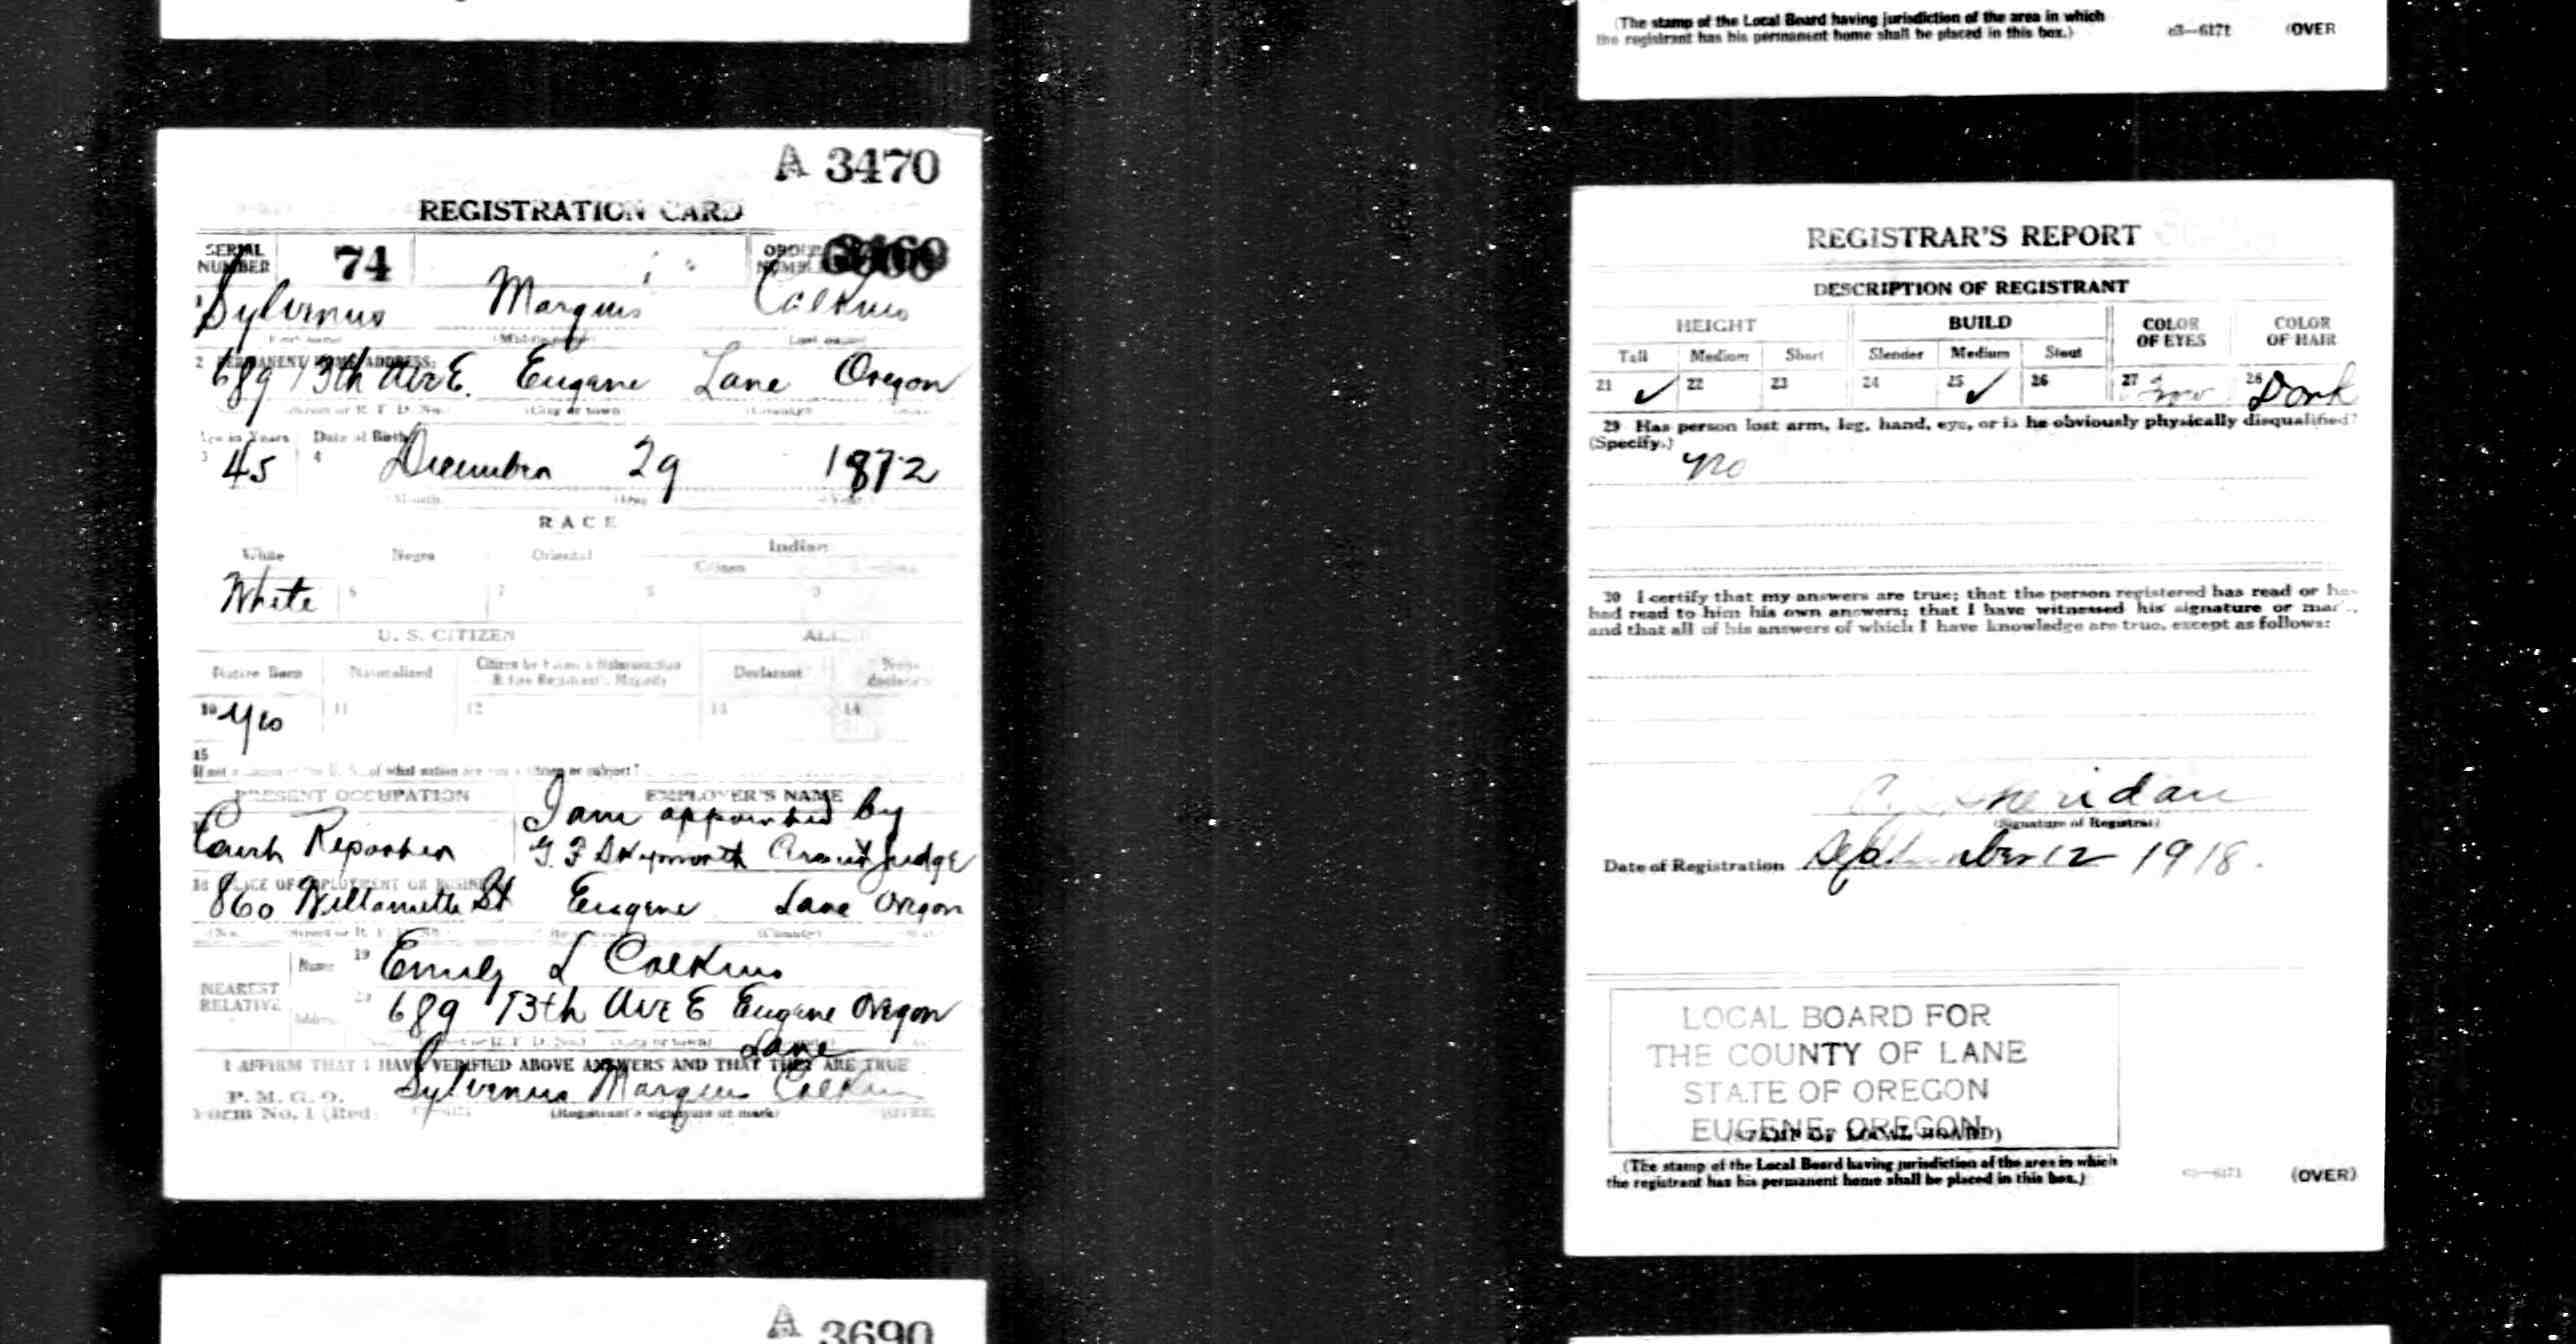 A 3470
REGISTRATION CARD
SERIAL NUMBER 74 ORDER NUMBER
1 Sylvenus Marquis Calkins
(First name) (Middle name) (Last name)
2 PERMANENT HOME ADDRESS:
689 13th Ave E. Eugene Lane Oregon
(Street or R. F. D. No.) (City or town) (County)
Age in Years Date of Birth
3 45 4 December 29 1872
Month Day Year
RACE
White Negro Oriental Indian
Citizen
White 6 7 8 9
U. S. CITIZEN ALIEN
Native Born Naturalized Citizen by Father's Naturalization Before Registrant's Majority Declarant Non-declarant
10 Yes 11 12 13 14
15
If not a citizen of the U. S., of what nation are you a citizen or subject?
PRESENT OCCUPATION EMPLOYER'S NAME
Court Reporter I am appointed by
G. F. Skipworth Circuit Judge
18 PLACE OF EMPLOYMENT OR BUSINESS
860 Willamette St Eugene Lane Oregon
(No.) (Street or R. F. D. No.) (County)
NEAREST RELATIVE Name 19 Emily L Calkins
Address 20 689 13th Ave E Eugene Oregon
Lane
I AFFIRM THAT I HAVE VERIFIED ABOVE ANSWERS AND THAT THEY ARE TRUE
P. M. G. O.
Form No. 1 (Red) Sylvenus Marquis Calkins
(Registrant's signature or mark) (OVER)
A 3690
(The stamp of the Local Board having jurisdiction of the area in which
the registrant has his permanent home shall be placed in this box.) 03—6171 (OVER
REGISTRAR'S REPORT
DESCRIPTION OF REGISTRANT
HEIGHT BUILD COLOR OF EYES COLOR OF HAIR
Tall Medium Short Slender Medium Stout
21 ✓ 22 23 24 25 ✓ 26 27 28 Dark
29 Has person lost arm, leg, hand, eye, or is he obviously physically disqualified?
(Specify.)
No
30 I certify that my answers are true; that the person registered has read or has
had read to him his own answers; that I have witnessed his signature or mark,
and that all of his answers of which I have knowledge are true, except as follows:
Sheridan
(Signature of Registrar)
Date of Registration September 12 1918.
LOCAL BOARD FOR
THE COUNTY OF LANE
STATE OF OREGON
EUGENE, OREGON
(STAMP OF LOCAL BOARD)
(The stamp of the Local Board having jurisdiction of the area in which
the registrant has his permanent home shall be placed in this box.) 03—6171 (OVER)